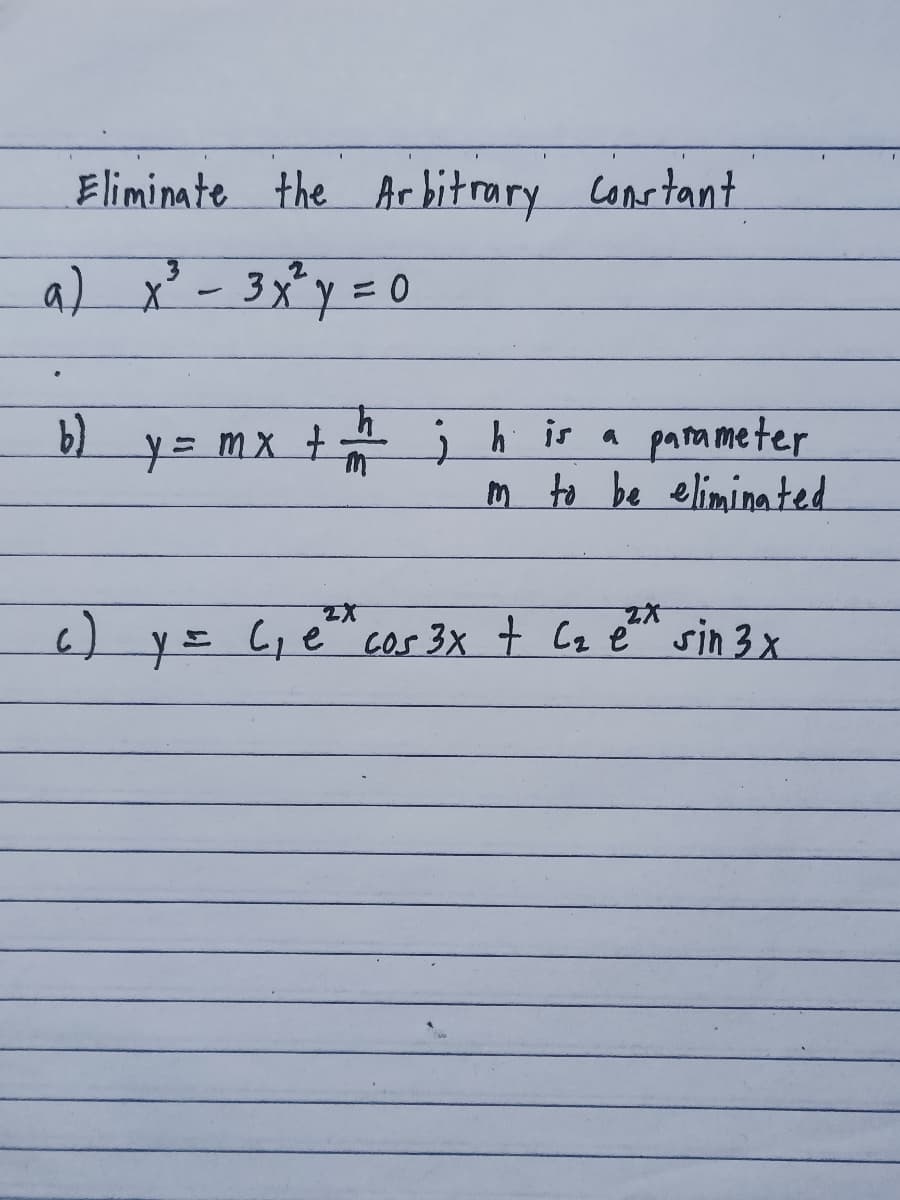 Eliminate the Arbitrary Constant
a) x³ - 3x²y = 0
b) y = mx + h/m ; h is a parameter
m to be eliminated
c) y = C₁ e²ˣ cos 3x + C₂ e²ˣ sin 3x